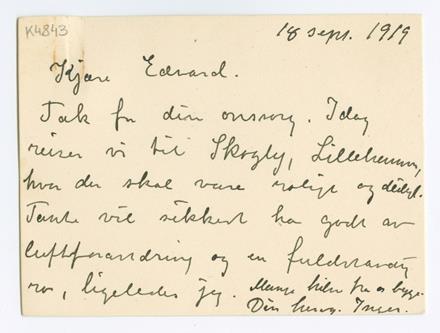 K4843
18 sept. 1919
Kjære Edvard.
Tak for din omsorg. Idag
reiser vi til Skogly, Lillehammer,
hvor der skal være roligt og deiligt.
Tante vil sikkert ha godt av
luftforandring og en fuldstændig
ro, ligeledes jeg. Mange hilsn fra os begge
Din heng. Inger.